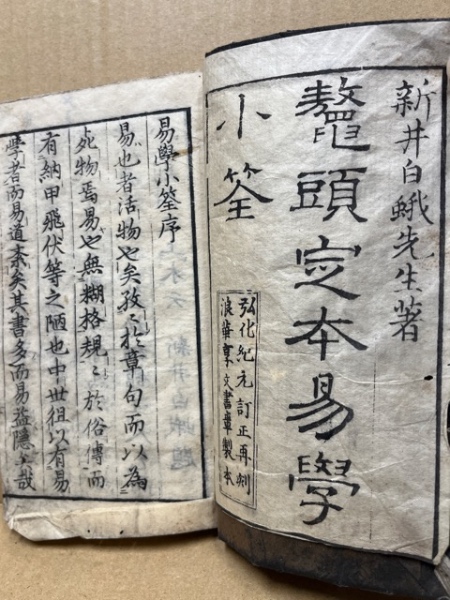 新井白蛾先生著
鼇頭定本易學
小筌
弘化紀元訂正再刻
浪華享文書章製本
易學小筌序
易也者活物也矣孜〻於章句而以為
死物焉易也無糊格規〻於俗傳而
有納甲飛伏等之陋也中世徂以有易
學者而易道紊矣其書多而易益隱〻哉